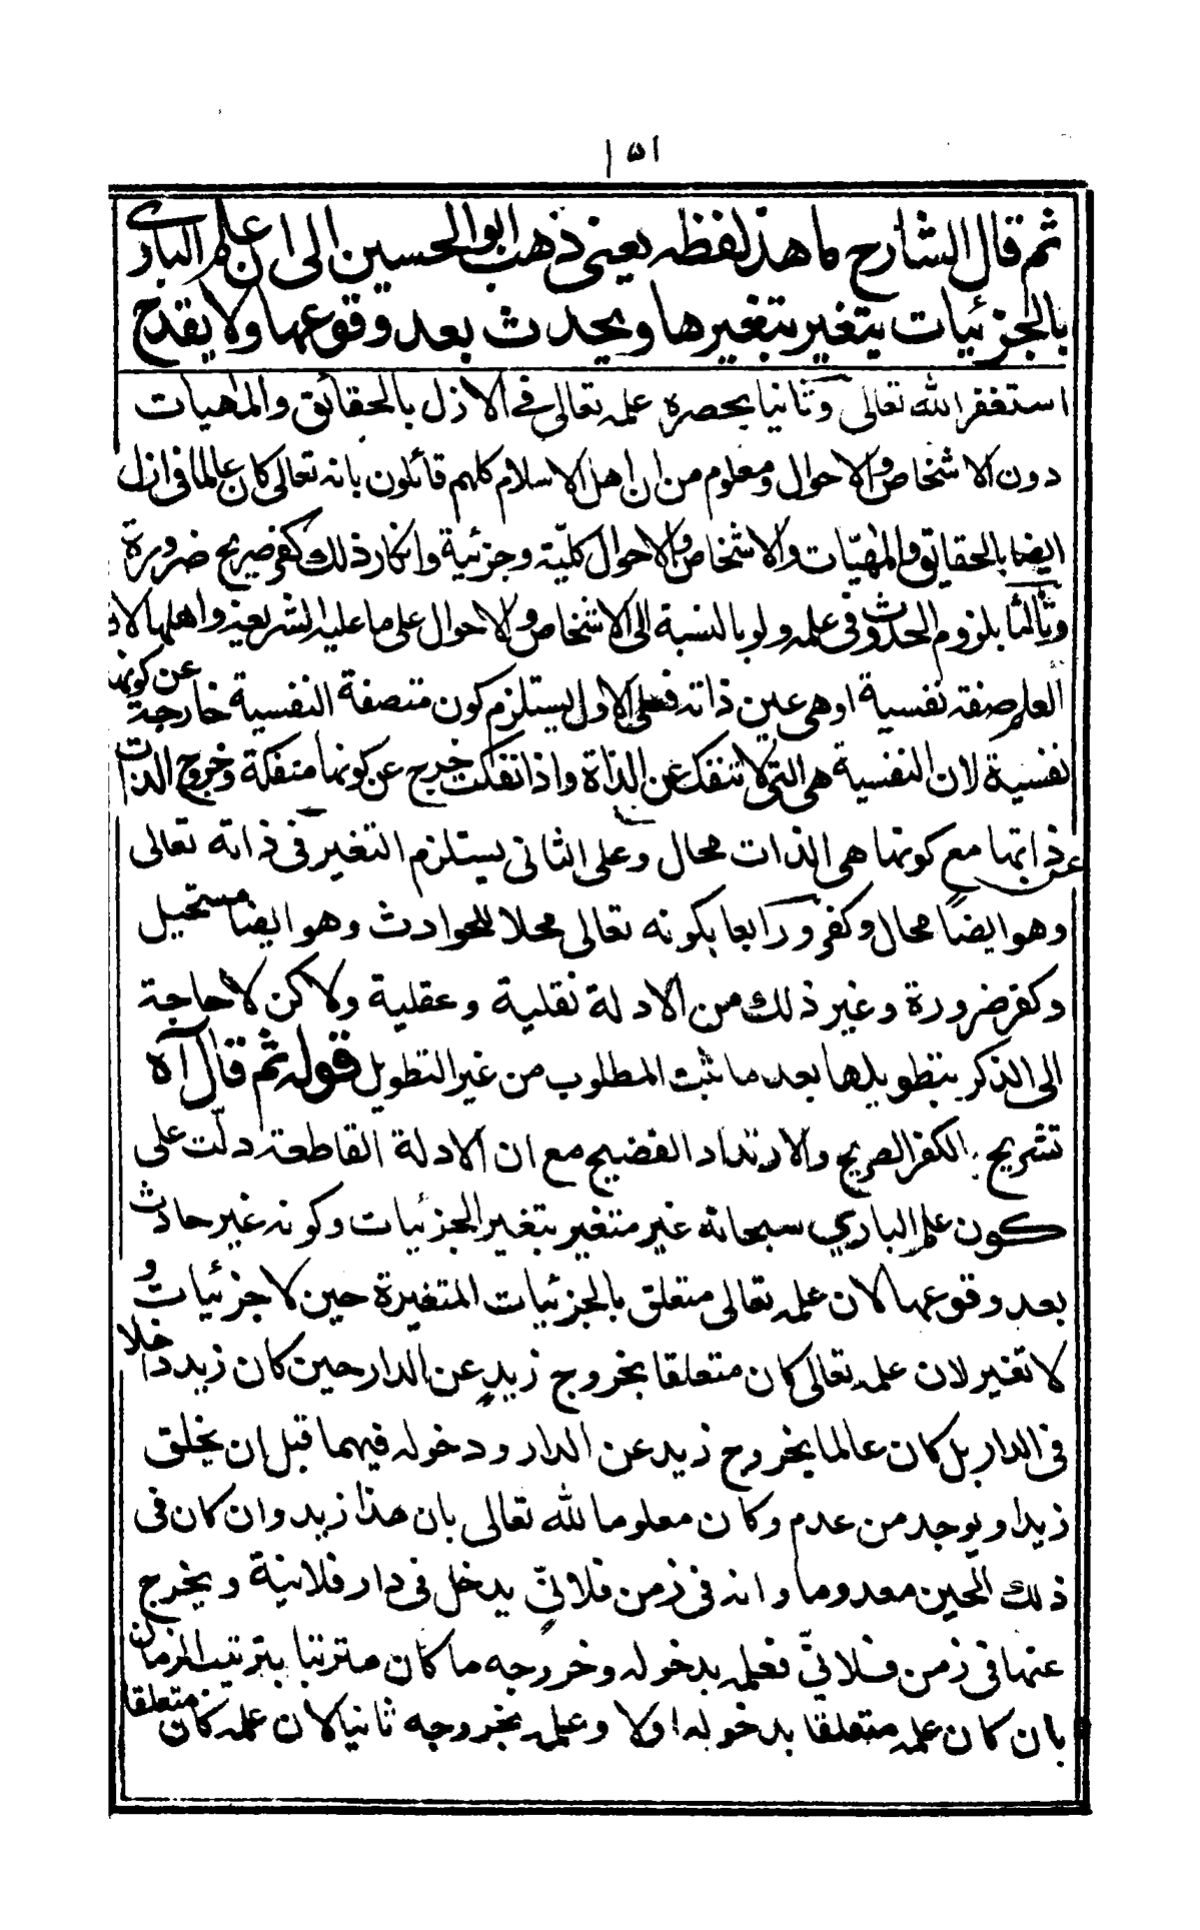 ١٥١
ثم قال الشارح ما هذ لفظه يعنى ذهب ابو الحسين الى ان علم البارى
بالجزئيات يتغير بتغيرها ويحدث بعد وقوعها ولا يقدح
استغفر الله تعالى وثانيا بحصره علمه تعالى فى الازل بالحقائق والماهيات
دون الاشخاص والاحوال ومعلوم من ان اهل الاسلام كلهم قائلون بانه تعالى كان عالما فى ازل
ايضا بالحقايق والمهيّات والاشخاص والاحوال كليّة وجزئية وانكار ذلك كفر صريح ضرورة
وثالثا بلزوم الحدوث فى علمه ولو بالنسبة الى الاشخاص والاحوال على ما عليه الشريعة واهلها لان
العلم صفة نفسية او هى عين ذاته فعلى الاول يستلزم كون متصفة النفسية خارجة عن كونها
نفسية لان النفسية هى التى لا تنفك عن الذاة واذا انفكت خرج عن كونها متفكة وخروج الذات
عن ذاتها مع كونها هى الذات محال وعلى الثانى يستلزم التغير فى ذاته تعالى
وهو ايضاً محال وكفر ورابعا بكونه تعالى محلا للحوادث وهو ايضا مستحيل
وكفر ضرورة وغير ذلك من الادلة نقلية وعقلية ولاكن لا حاجة
الى الذكر بتطويلها بعد ما ثبت المطلوب من غير التطويل قوله ثم قال آه
تشريح بالكفر الصريح والارتداد الفضيح مع ان الادلة القاطعة دلّت على
كون علم الباري سبحانه غير متغير بتغير الجزئيات وكونه غير حادث
بعد وقوعها لان علمه تعالى متعلق بالجزئيات المتغيرة حين لا جزئيات و
لا تغير لان علمه تعالى كان متعلقا بخروج زيدٍ عن الدار حين كان زيد داخلا
فى الدار بل كان عالما بخروج زيد عن الدار ودخوله فيهما قبل ان يخلق
زيدا ويوجد من عدم وكان معلوما لله تعالى بان هذا زيد وان كان فى
ذلك الحين معدوما وانه فى زمن فلانيّ يدخل فى دار فلانية ويخرج
عنها فى زمن فلانيّ فعلمه بدخوله وخروجه ما كان مترتبا بترتيب الزمان
بان كان علمه متعلقا بدخوله اولا وعلمه بخروجه ثانيا لان علمه كان متعلقا